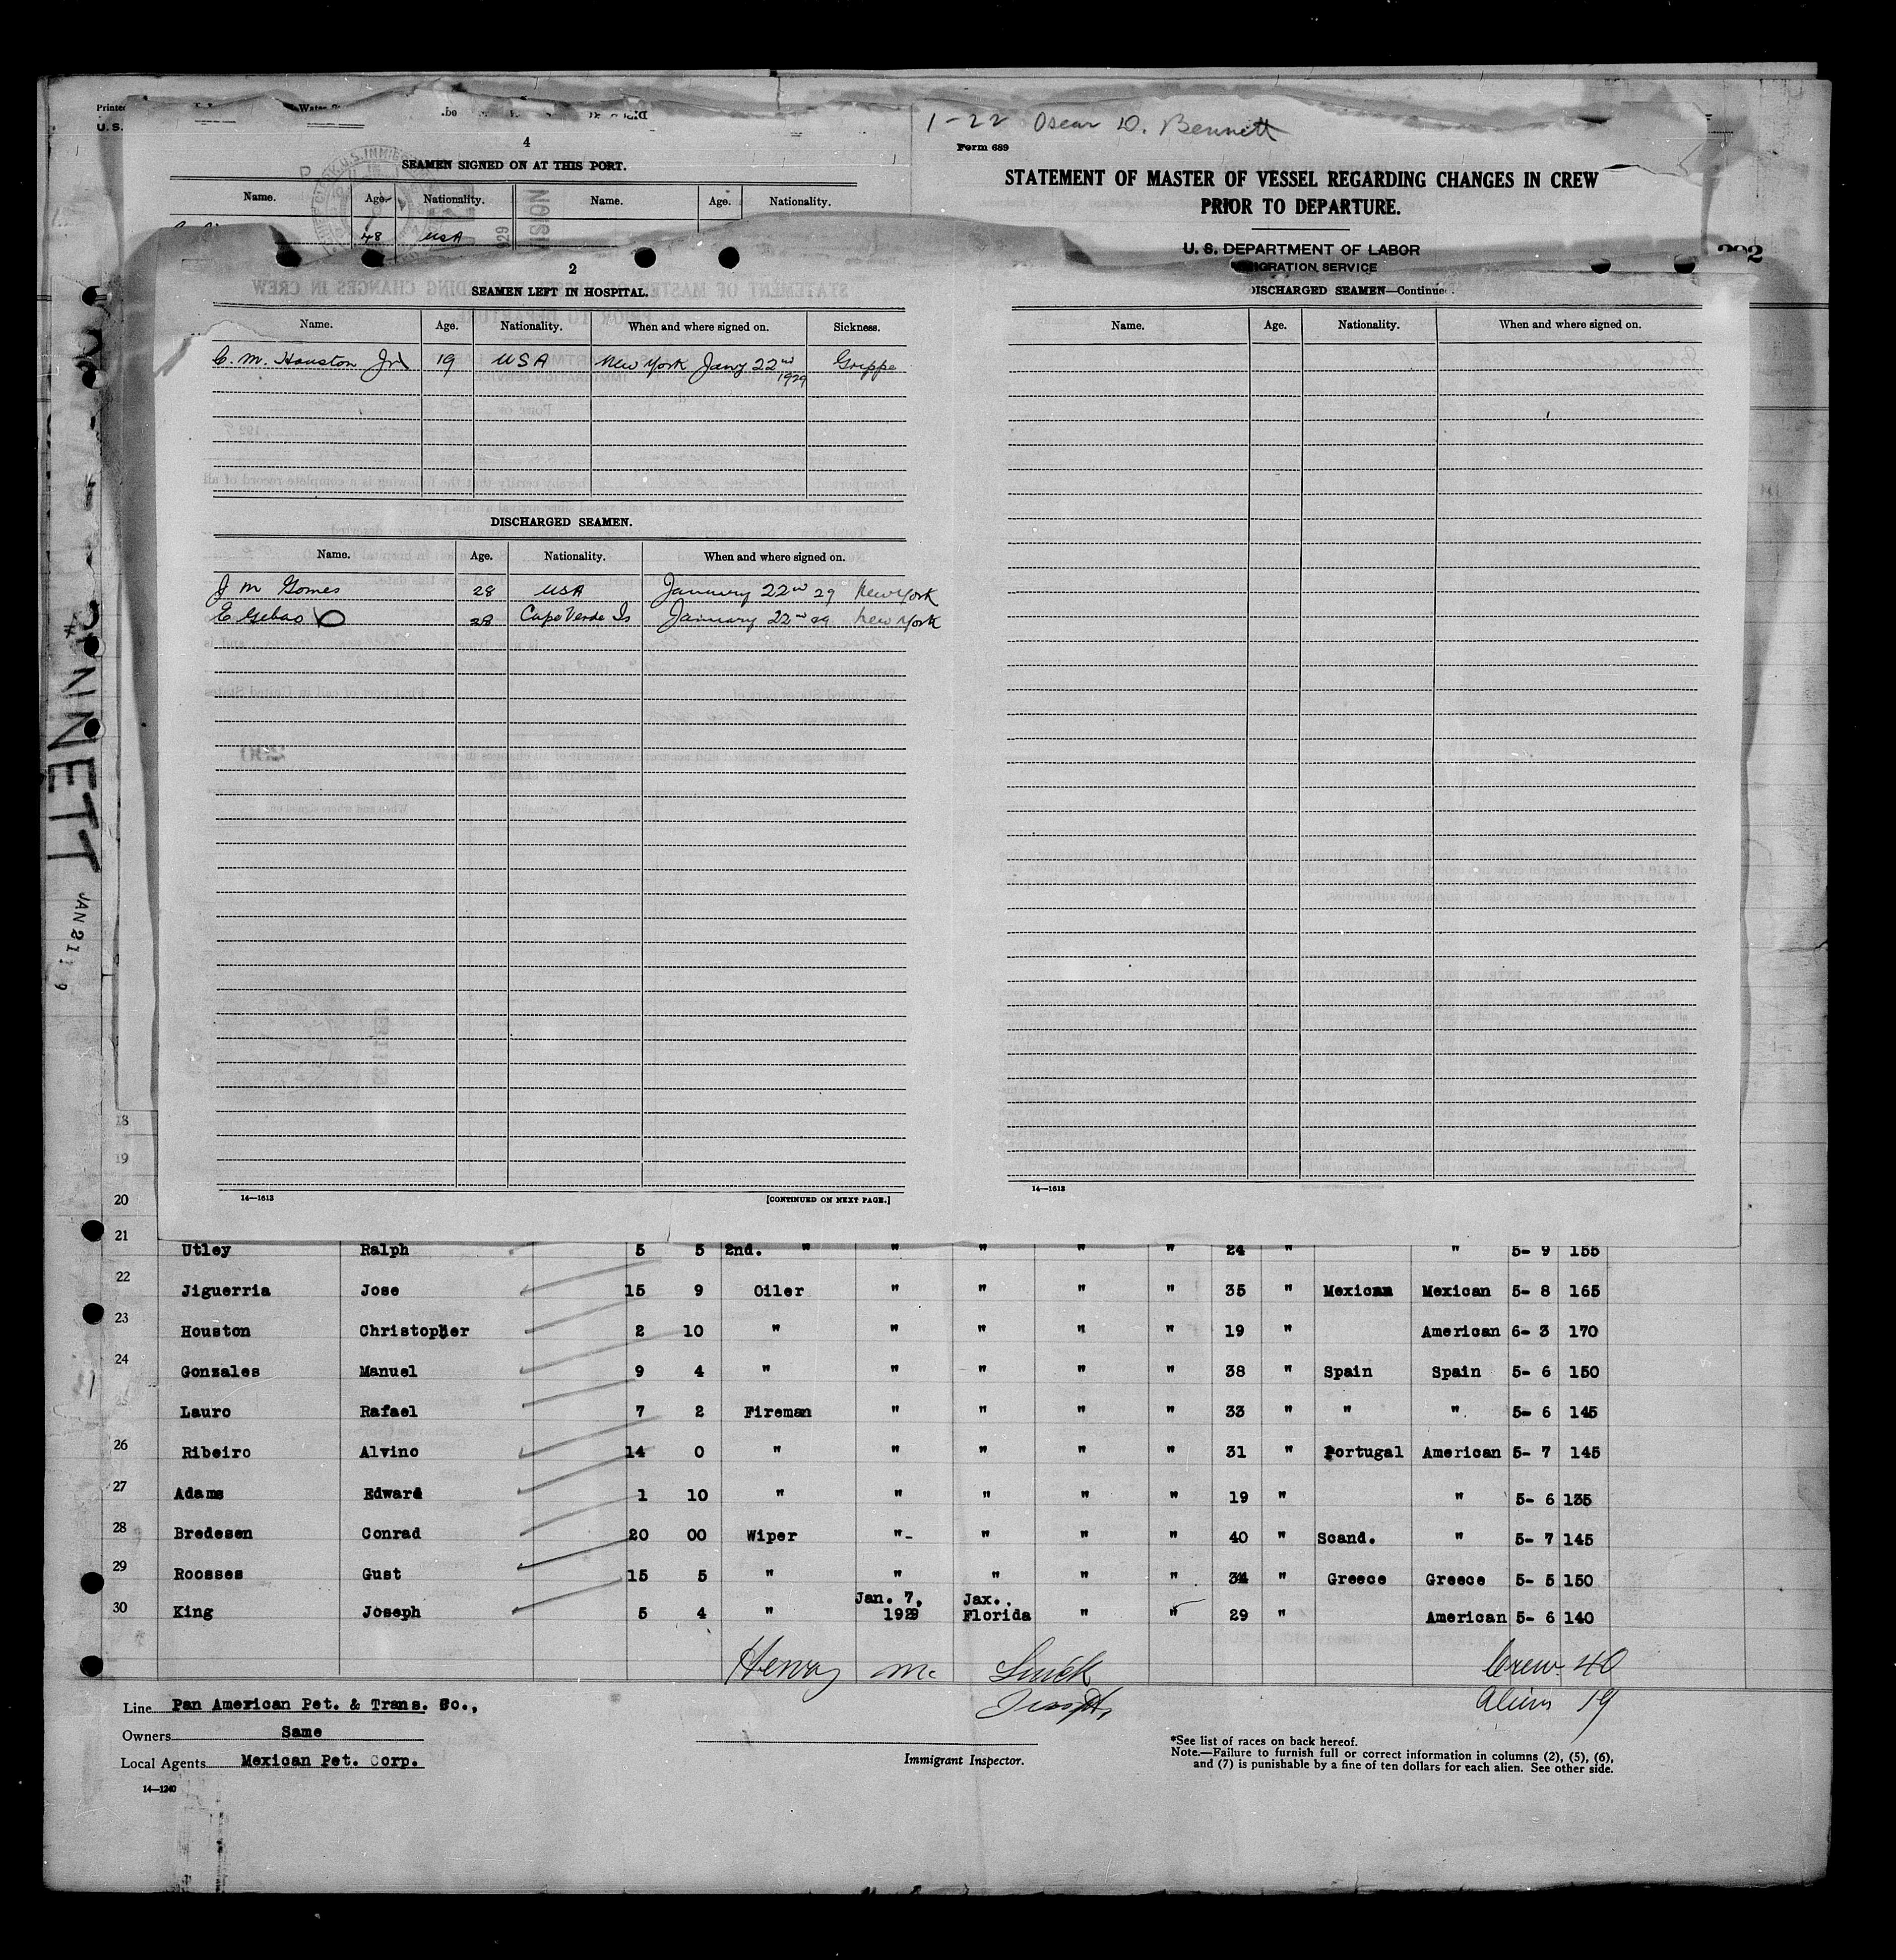 Printed
U. S.
1-22 Oscar D. Bennett
Form 689
4
SEAMEN SIGNED ON AT THIS PORT.
Name. Age. Nationality. Name. Age. Nationality.
48 USA
STATEMENT OF MASTER OF VESSEL REGARDING CHANGES IN CREW
PRIOR TO DEPARTURE.
U. S. DEPARTMENT OF LABOR
IMMIGRATION SERVICE
2
SEAMEN LEFT IN HOSPITAL.
Name. Age. Nationality. When and where signed on. Sickness.
C. M. Houston Jr 19 USA New York Jany 22nd 1929 Grippe
DISCHARGED SEAMEN.
Name. Age. Nationality. When and where signed on.
J M Gomes 28 USA January 22nd 29 New York
E Gebao 28 Cape Verde Is January 22nd 29 New York
14—1613 [CONTINUED ON NEXT PAGE.]
DISCHARGED SEAMEN—Continued.
Name. Age. Nationality. When and where signed on.
14—1613
NNETT
JAN 21
18
19
20
21 Utley Ralph 5 5 2nd. " " " " " 24 " " 5- 9 155
22 Jiguerria Jose 15 9 Oiler " " " " 35 " Mexican Mexican 5- 8 165
23 Houston Christopher 2 10 " " " " " 19 " American 6- 3 170
24 Gonzales Manuel 9 4 " " " " " 38 " Spain Spain 5- 6 150
Lauro Rafael 7 2 Fireman " " " " 33 " " " 5- 6 145
26 Ribeiro Alvino 14 0 " " " " " 31 " Portugal American 5- 7 145
27 Adams Edward 1 10 " " " " " 19 " " 5- 6 135
28 Bredesen Conrad 20 00 Wiper "- " " " 40 " Scand. " 5- 7 145
29 Roosses Gust 15 5 " " " " " 34 " Greece Greece 5- 5 150
30 King Joseph 5 4 " Jan. 7, 1929 Jax. Florida " " 29 " American 5- 6 140
Henry Mc
Crew 40
Aliens 19
Line Pan American Pet. & Trans. Co.,
Owners Same
Local Agents Mexican Pet. Corp.
14—1240
Immigrant Inspector.
*See list of races on back hereof.
Note.—Failure to furnish full or correct information in columns (2), (5), (6),
and (7) is punishable by a fine of ten dollars for each alien. See other side.